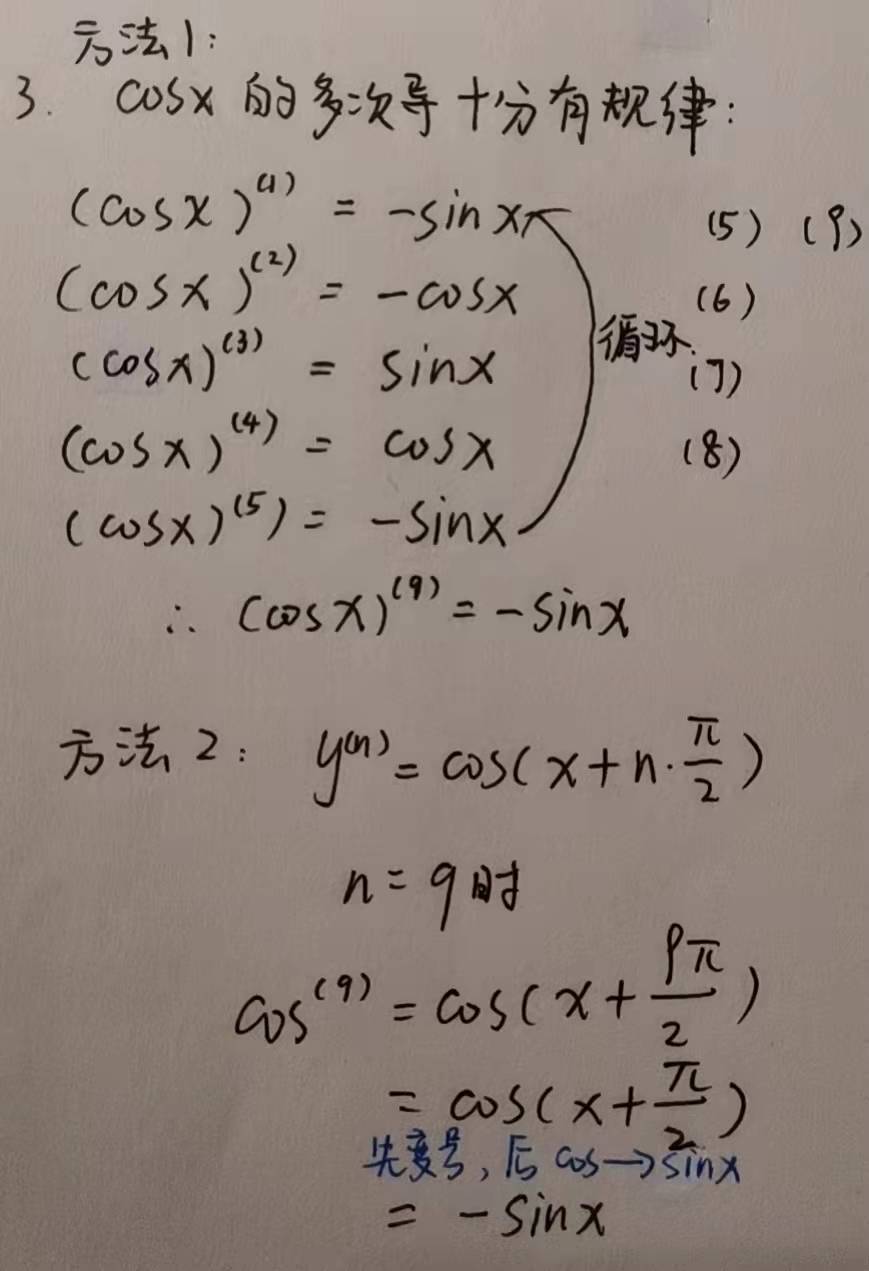 方法1:
3. cosx 的多次导十分有规律:
(cosx)⁽¹⁾ = -sinx (5) (9)
(cosx)⁽²⁾ = -cosx (6)
循环
(cosx)⁽³⁾ = sinx (7)
(cosx)⁽⁴⁾ = cosx (8)
(cosx)⁽⁵⁾ = -sinx
∴ (cosx)⁽⁹⁾ = -sinx
方法2: y⁽ⁿ⁾ = cos(x+n·π/2)
n=9时
cos⁽⁹⁾ = cos(x+9π/2)
= cos(x+π/2)
先变号,后cos→sinx
= -sinx